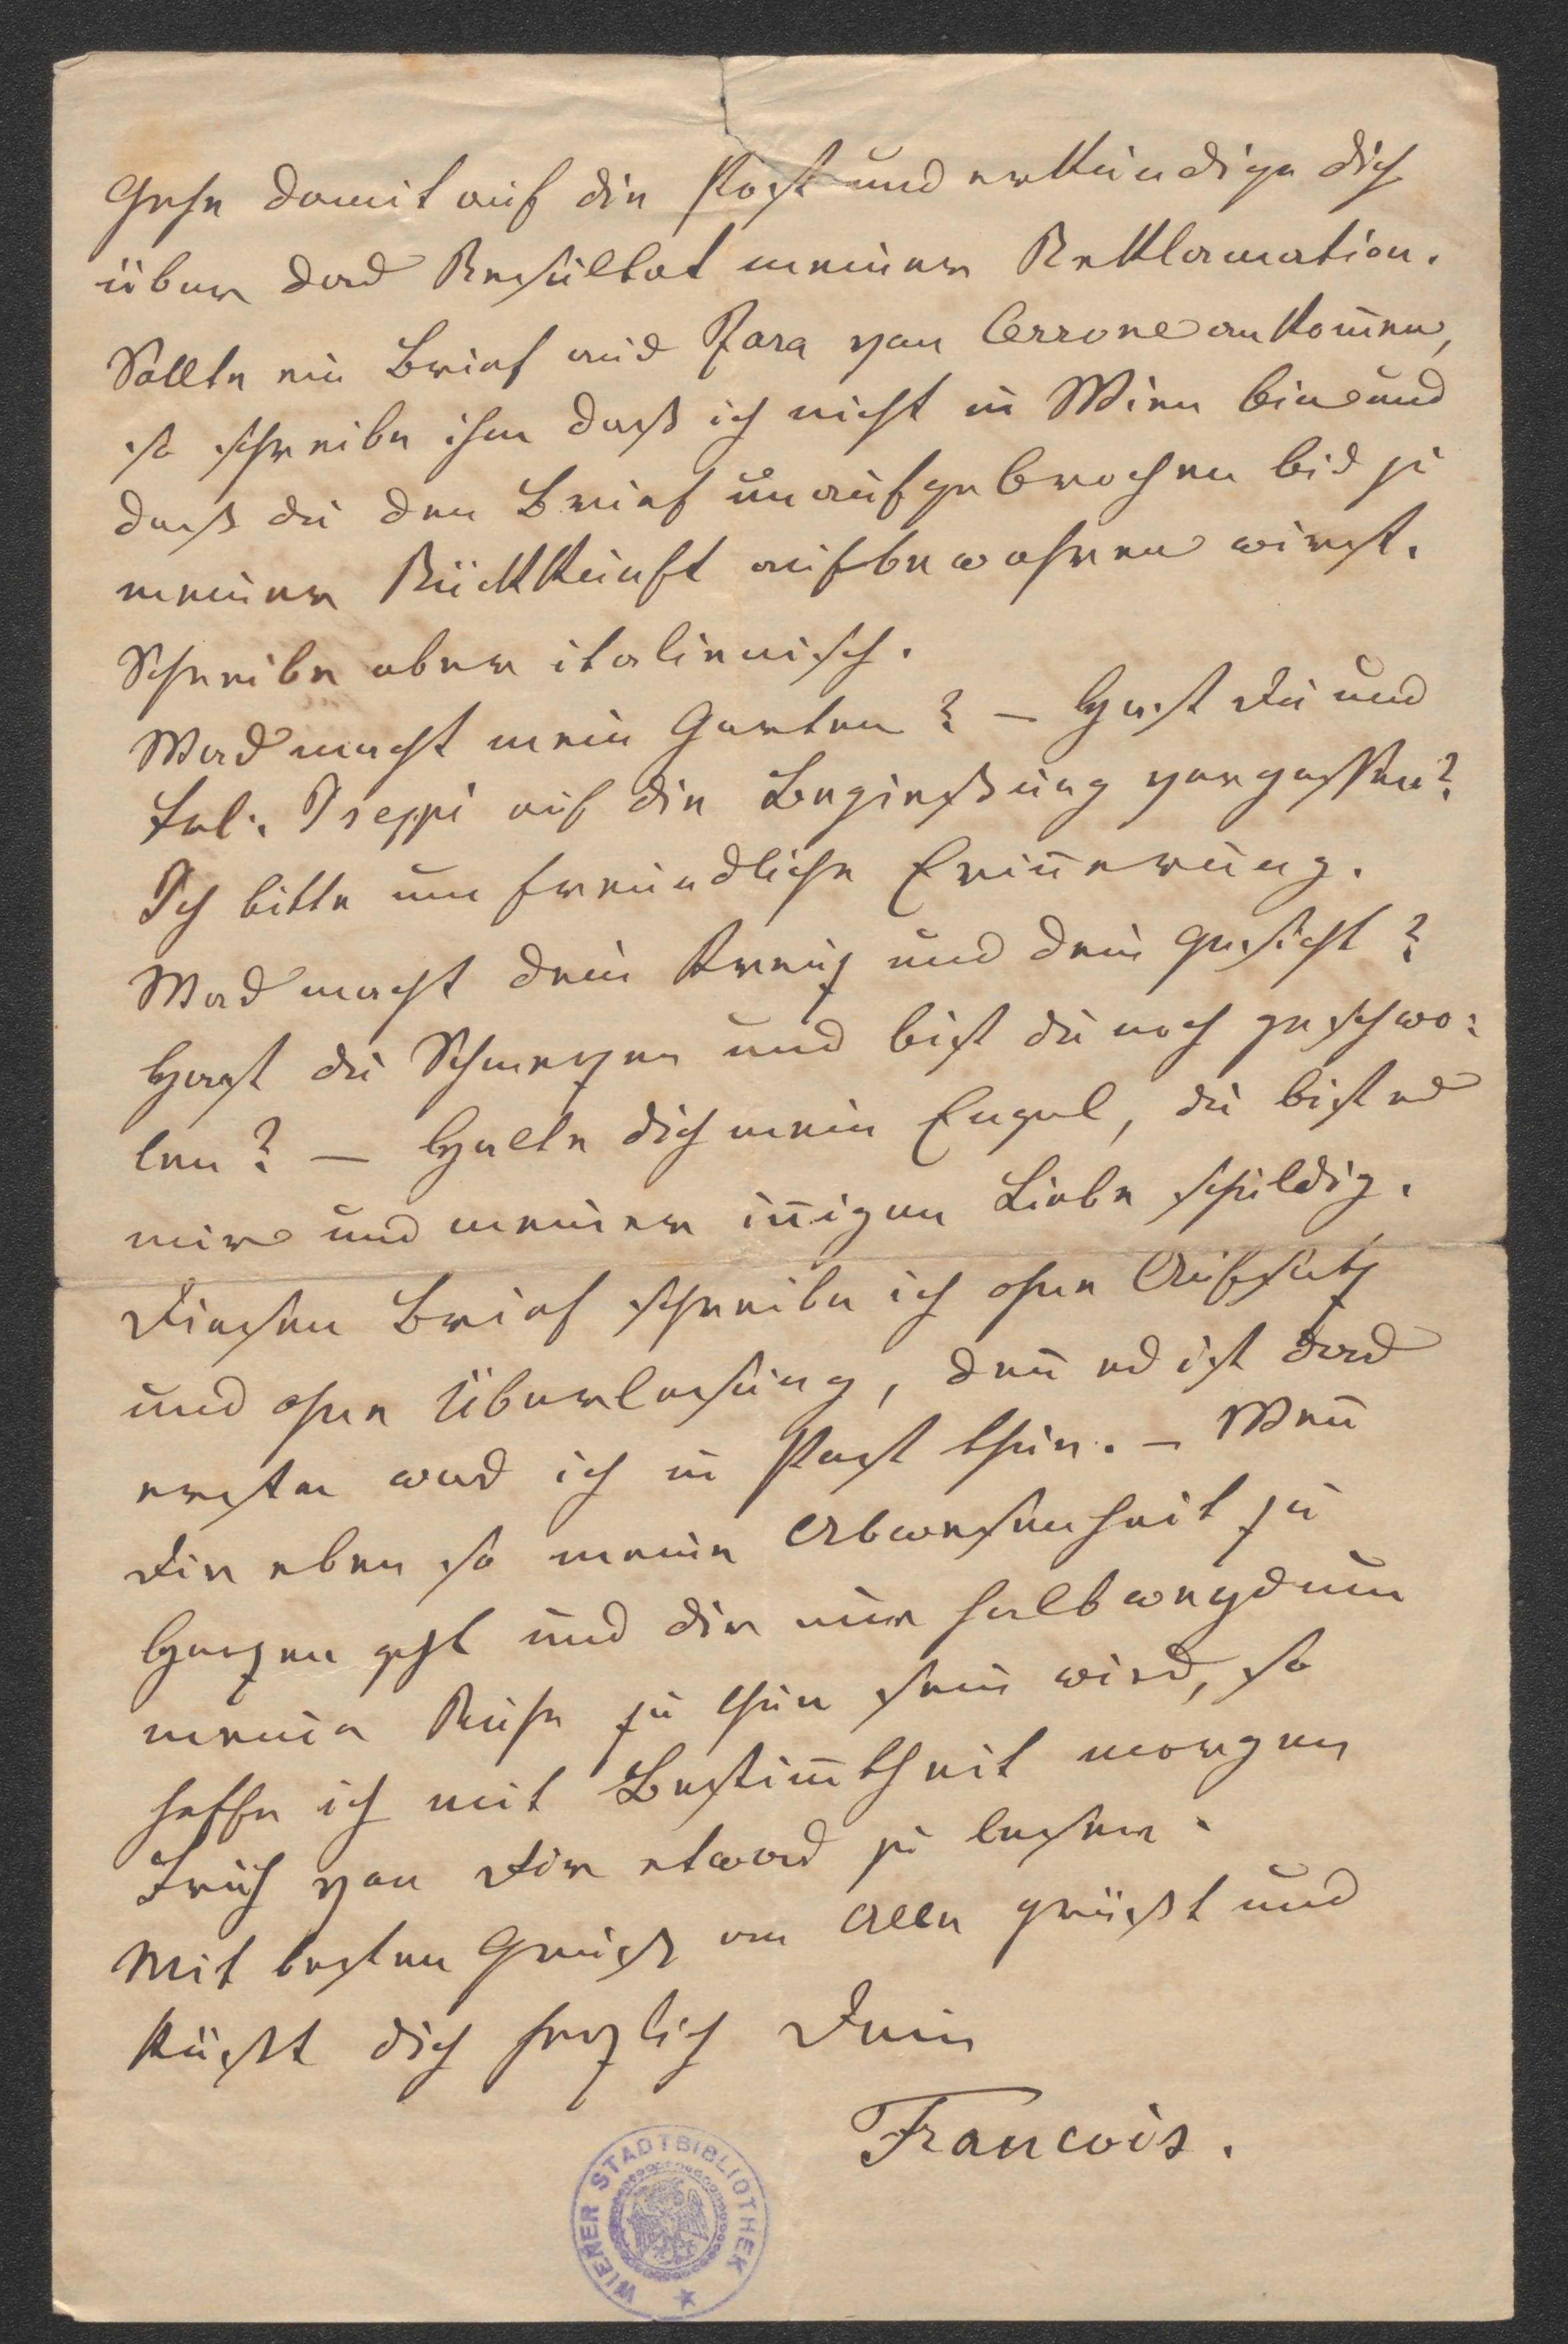 Gehe damit auf die Post und erkundige dich
über das Resultat meiner Reklamation.
Sollte ein Brief aus Zara von Cerrone ankom̄en,
so schreibe ihm daß ich nicht in Wien bin und
daß du den Brief unaufgebrochen bis zu
meiner Rückkunft aufbewahren wirst.
Schreibe aber italienisch.
Was macht mein Garten? – Hast Du und
Frl. Pseppi auf die Begießung vergessen?
Ich bitte um freundliche Erin̄erung.
Was macht dein Kreuz und dein Gesicht?
Hast du Schmerzen und bist du noch geschwo:
len? – Halte dich mein Engel, du bist es
mir und meiner in̄igen Liebe schuldig.
Diesen Brief schreibe ich ohne Aufsatz
und ohne Überlesung, den̄ es ist das
erste was ich in Pest thue. – Wen̄
Dir eben so meine Abwesenheit zu
Herzen geht und dir nur halbwegs um
meine Ruhe zu thun sein wird, so
hoffe ich mit Bestim̄theit morgen
Früh von Dir etwas zu lesen.
Mit besten Gruß an Alle grüßt und
küßt dich herzlich Dein
Francois.
WIENER STADTBIBLIOTHEK